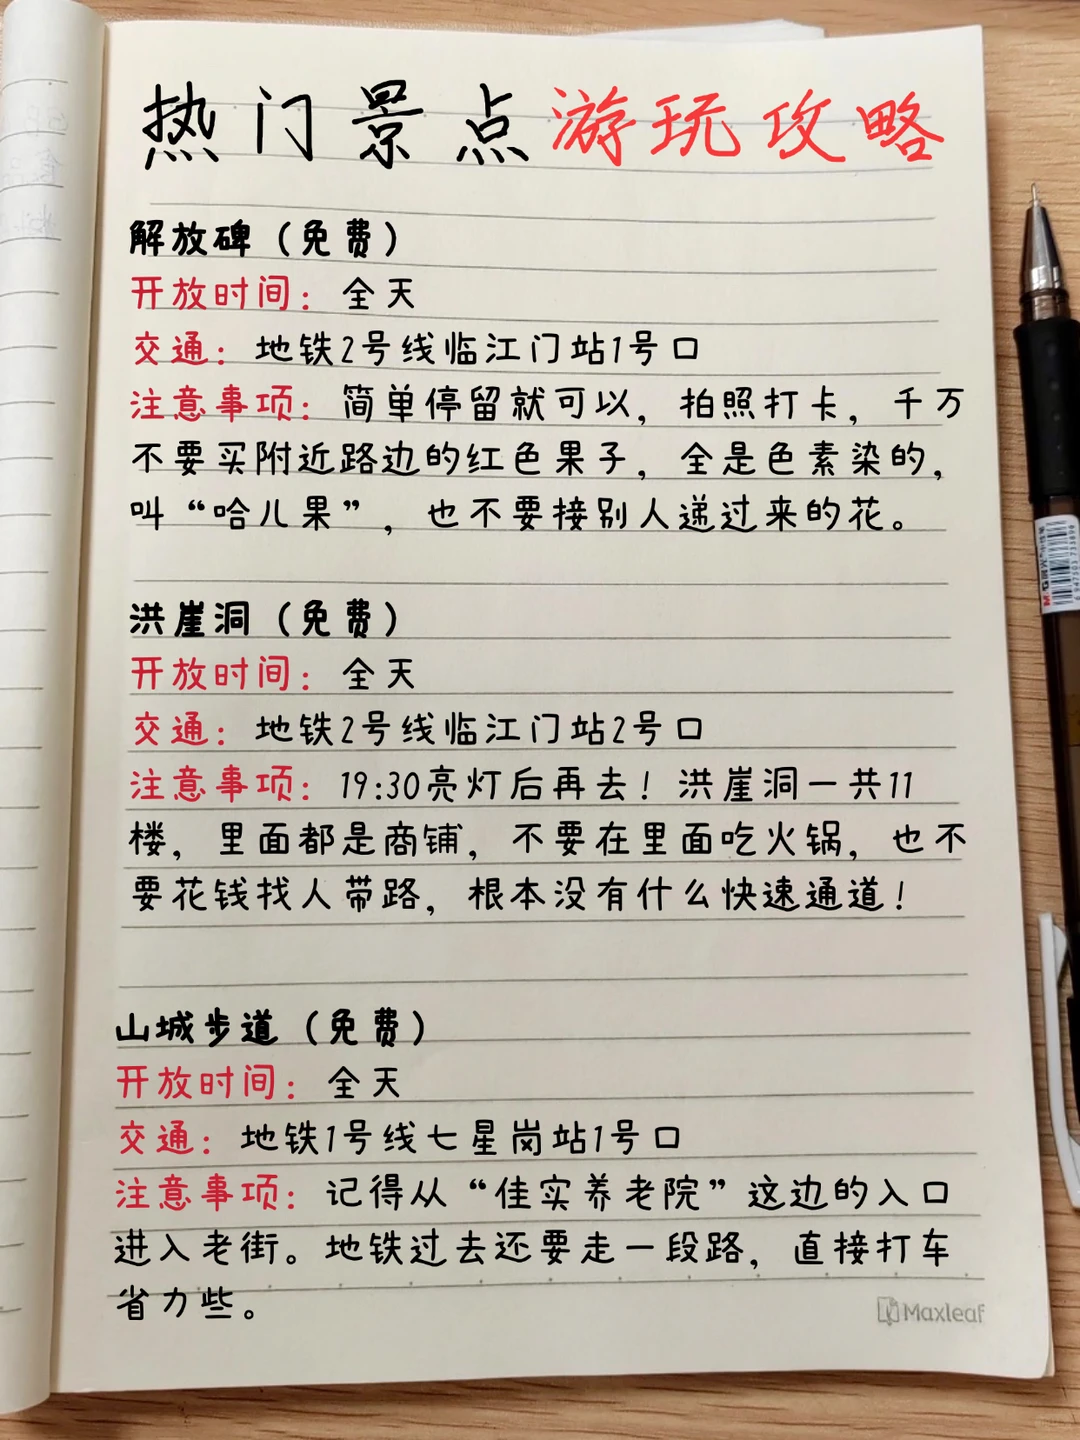 热门景点游玩攻略
解放碑（免费）
开放时间：全天
交通：地铁2号线临江门站1号口
注意事项：简单停留就可以，拍照打卡，千万
不要买附近路边的红色果子，全是色素染的，
叫“哈儿果”，也不要接别人递过来的花。
洪崖洞（免费）
开放时间：全天
交通：地铁2号线临江门站2号口
注意事项：19:30亮灯后再去！洪崖洞一共11
楼，里面都是商铺，不要在里面吃火锅，也不
要花钱找人带路，根本没有什么快速通道！
山城步道（免费）
开放时间：全天
交通：地铁1号线七星岗站1号口
注意事项：记得从“佳实养老院”这边的入口
进入老街。地铁过去还要走一段路，直接打车
省力些。
Maxleaf